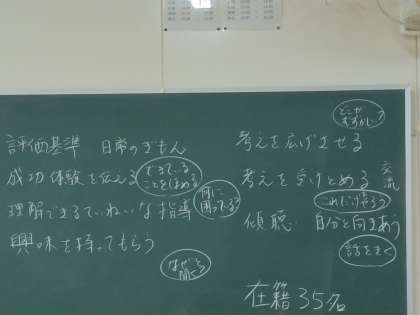 評価基準 日常のぎもん
成功体験を伝える
できている
ことをほめる
理解できるていねいな指導
何に
困ってる?
興味を持ってもらう
なぜと
聞く
どこが
むずかしい?
考えを広げさせる
考えを受けとめる
交流
これだけやろう
傾聴 自分と向きあう
話をきく
在籍 35名